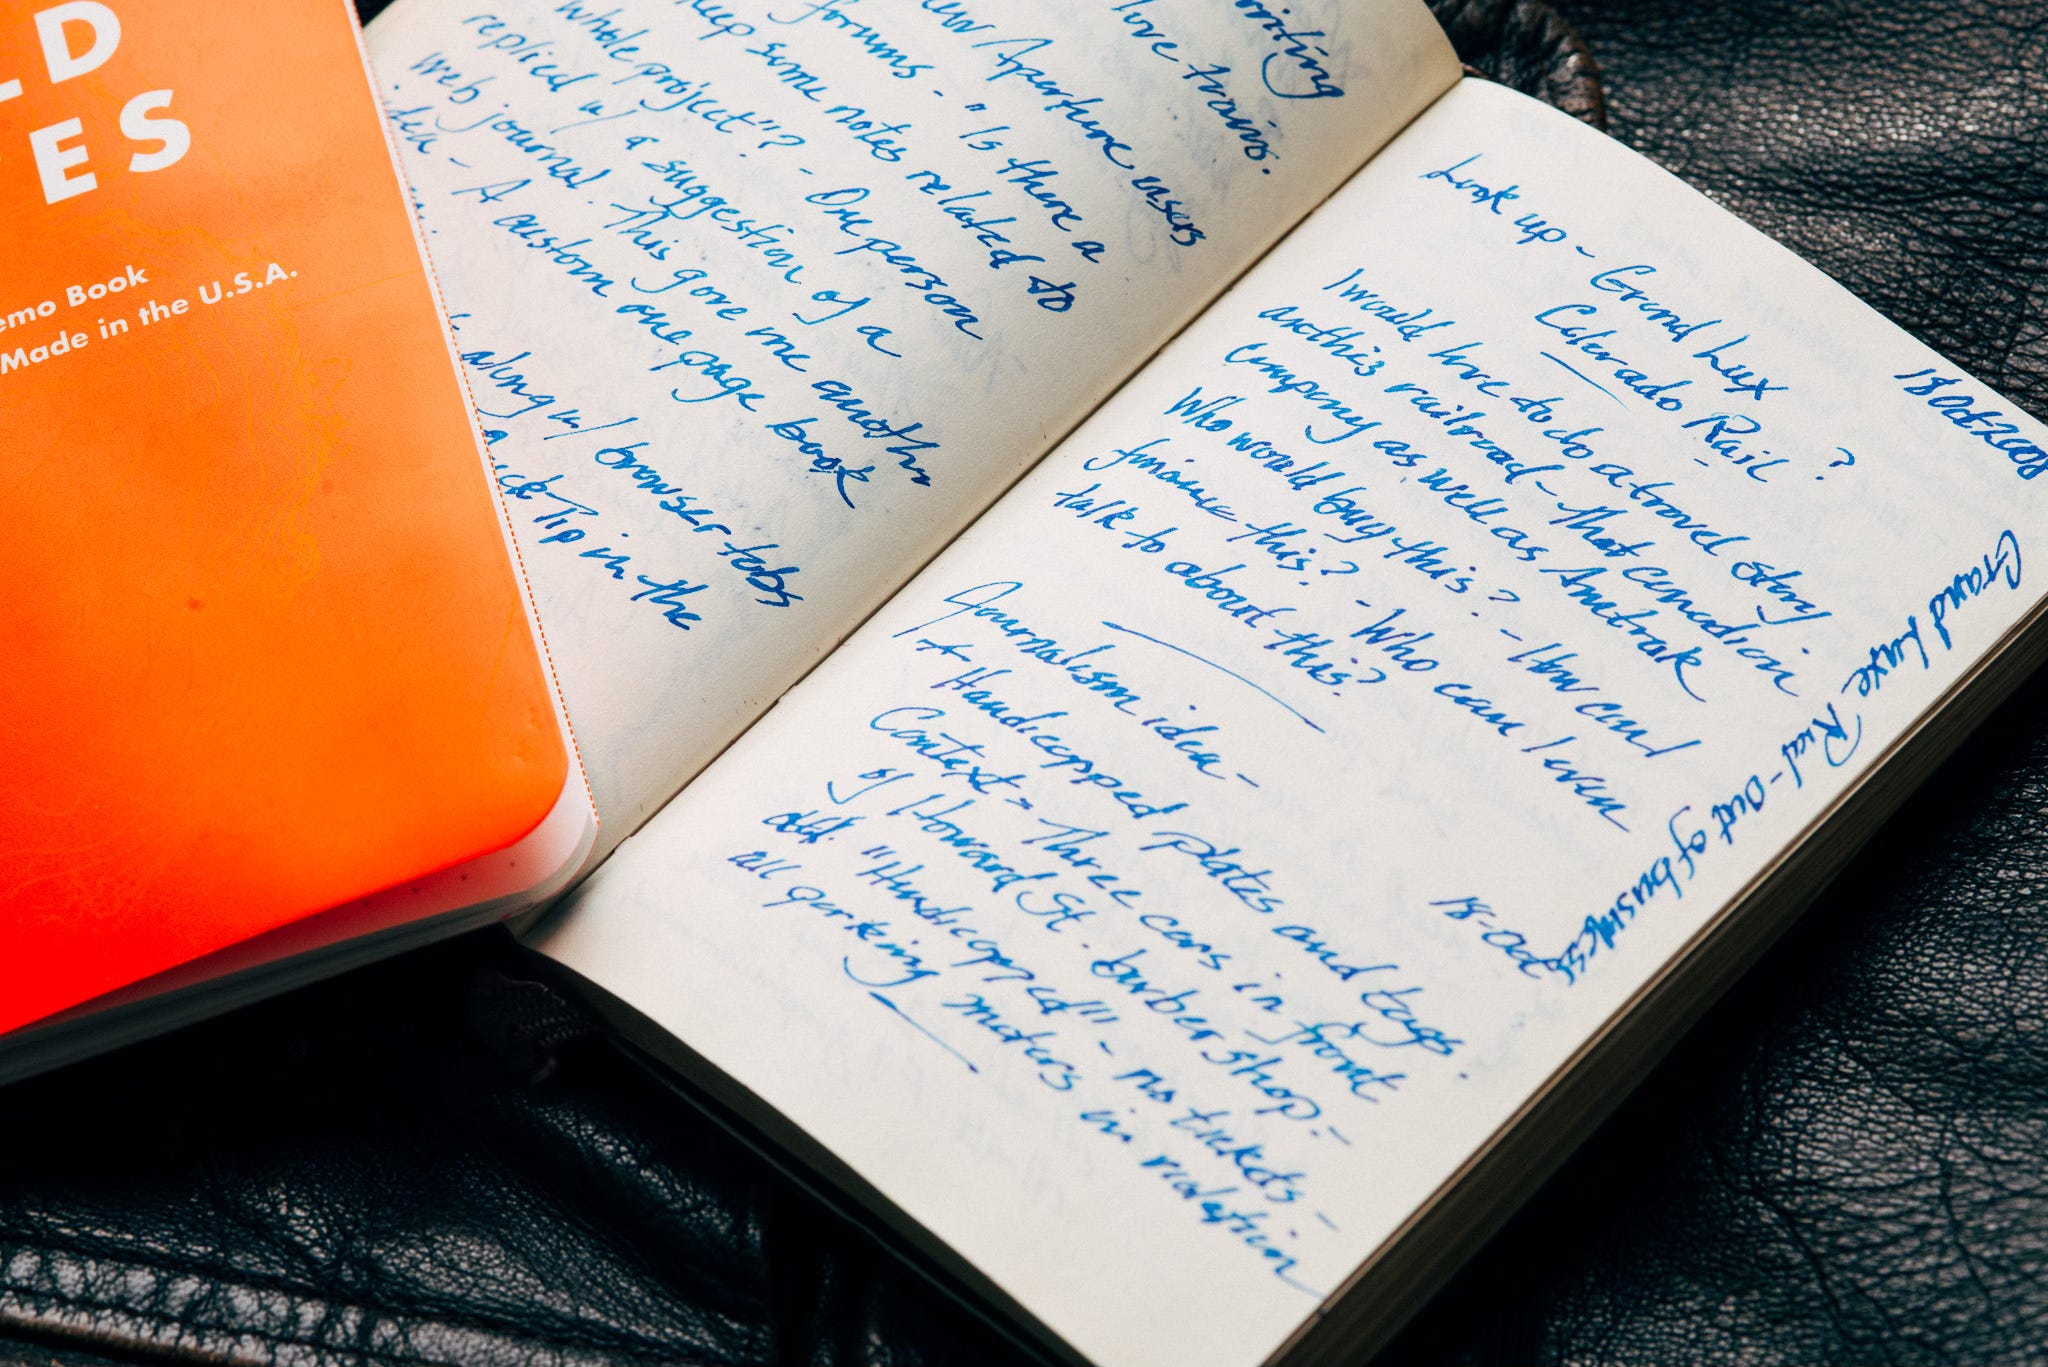 LD
ES
emo Book
Made in the U.S.A.
writing
love trains.
Aperture users
forums - "Is there a
keep some notes related to
whole project"? - One person
replied w/ a suggestion of a
web journal. This gave me another
idea - A custom one page book
along w/ browser tabs
Tip in the
18 Oct 2008
Look up - Grand Lux
Colorado Rail ?
I would love to do a travel story
on this railroad - that canadian
company as well as Amtrak
Who would buy this? - How can I
finance this? - Who can I even
talk to about this?
18-Oct
Journalism idea -
Handicapped plates and tags.
Context - Three cars in front
of Howard St. barber shop. -
all "Handicapped" - no tickets -
all parking meters in violation
Grand Luxe Rail - Out of business